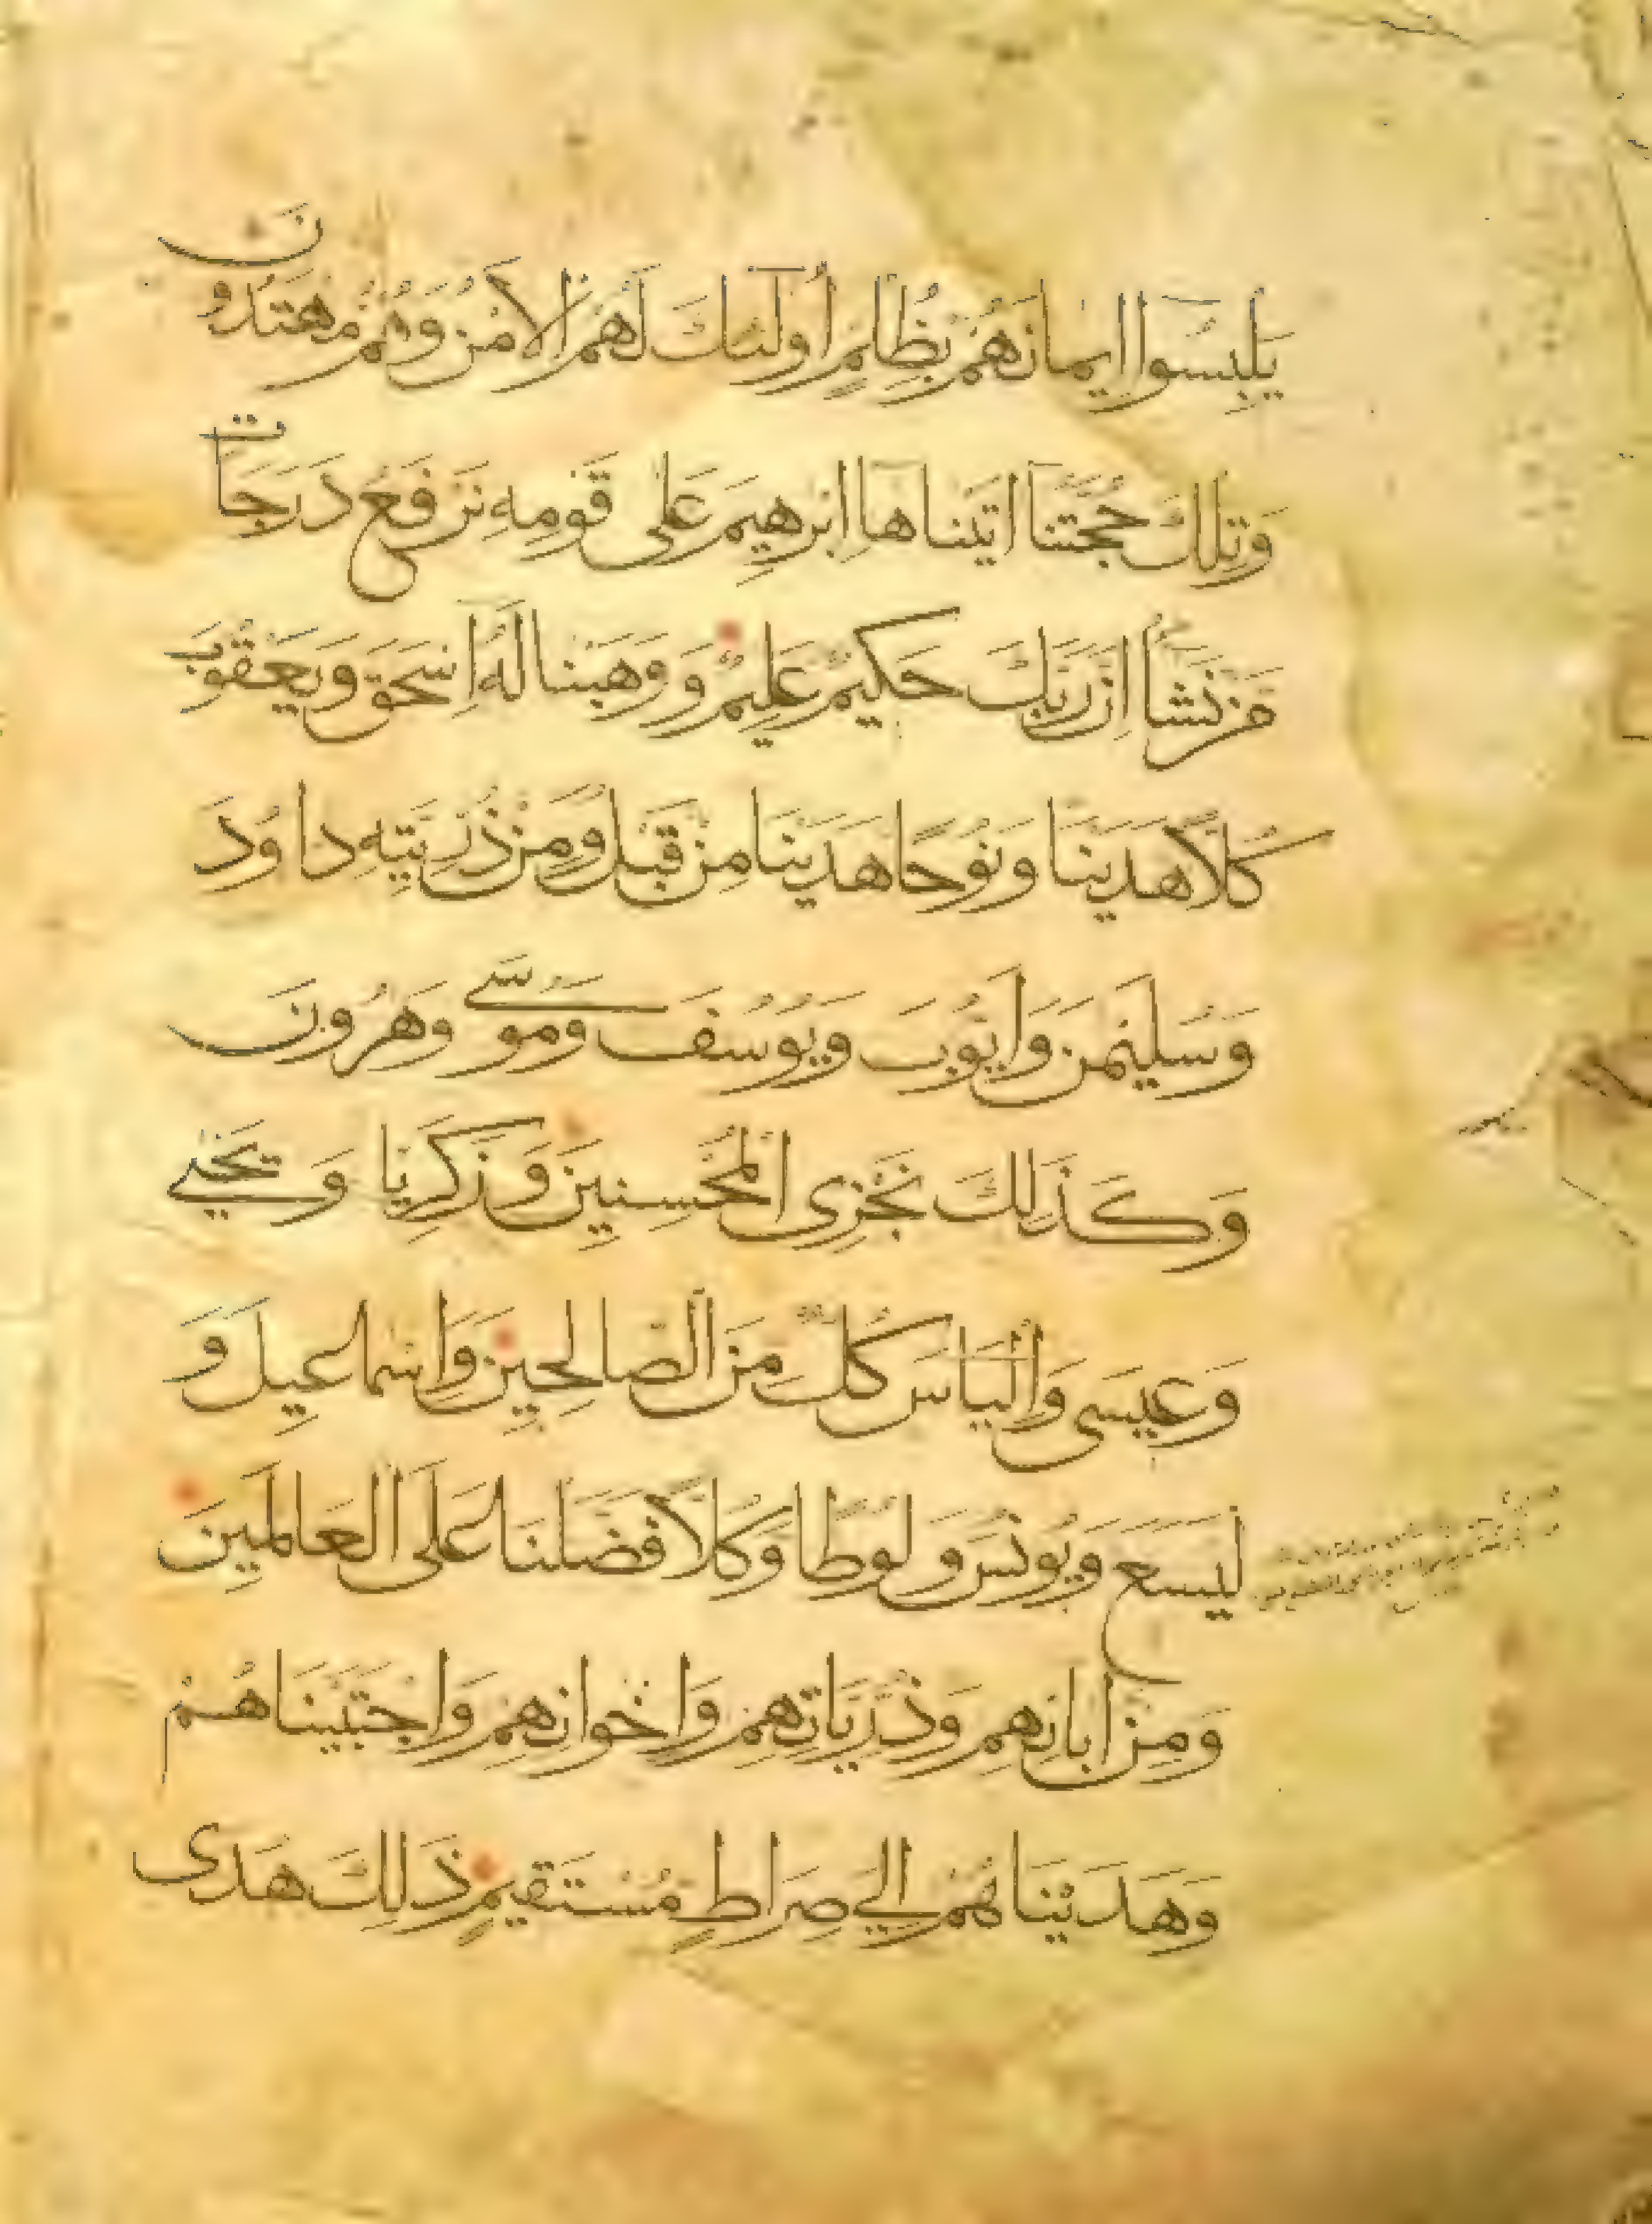 يَلْبِسُوا ايمَانَهُمْ بِظُلْمٍ أُولَئِكَ لَهُمُ الْأَمْنُ وَهُمْ مُهْتَدُونَ
وَتِلْكَ حُجَّتُنَا اتَيْنَاهَا ابْرهِيمَ عَلَى قَوْمِهِ نَرْفَعُ دَرَجَاتٍ
مَنْ نَشَاءُ إِنَّ رَبَّكَ حَكِيمٌ عَلِيمٌ وَوَهَبْنَا لَهُ إِسْحَقَ وَيَعْقُوبَ
كُلًّا هَدَيْنَا وَنُوحًا هَدَيْنَا مِنْ قَبْلُ وَمِنْ ذُرِّيَّتِهِ دَاوُدَ
وَسُلَيْمنَ وَايُّوبَ وَيُوسُفَ وَمُوسَى وَهرُونَ
وَكَذَلِكَ نَجْزِي الْمُحْسِنِينَ وَزَكَرِيَّا وَيَحْيَى
وَعِيسَى وَإِلْيَاسَ كُلٌّ مِنَ الصَّالِحِينَ وَاسْمَاعِيلَ وَ
لْيَسَعَ وَيُونُسَ وَلُوطًا وَكُلًّا فَضَّلْنَا عَلَى الْعَالَمِينَ
وَمِنْ آبَائِهِمْ وَذُرِّيَّاتِهِمْ وَإِخْوَانِهِمْ وَاجْتَبَيْنَاهُمْ
وَهَدَيْنَاهُمْ إِلَى صِرَاطٍ مُسْتَقِيمٍ ذَلِكَ هُدَى